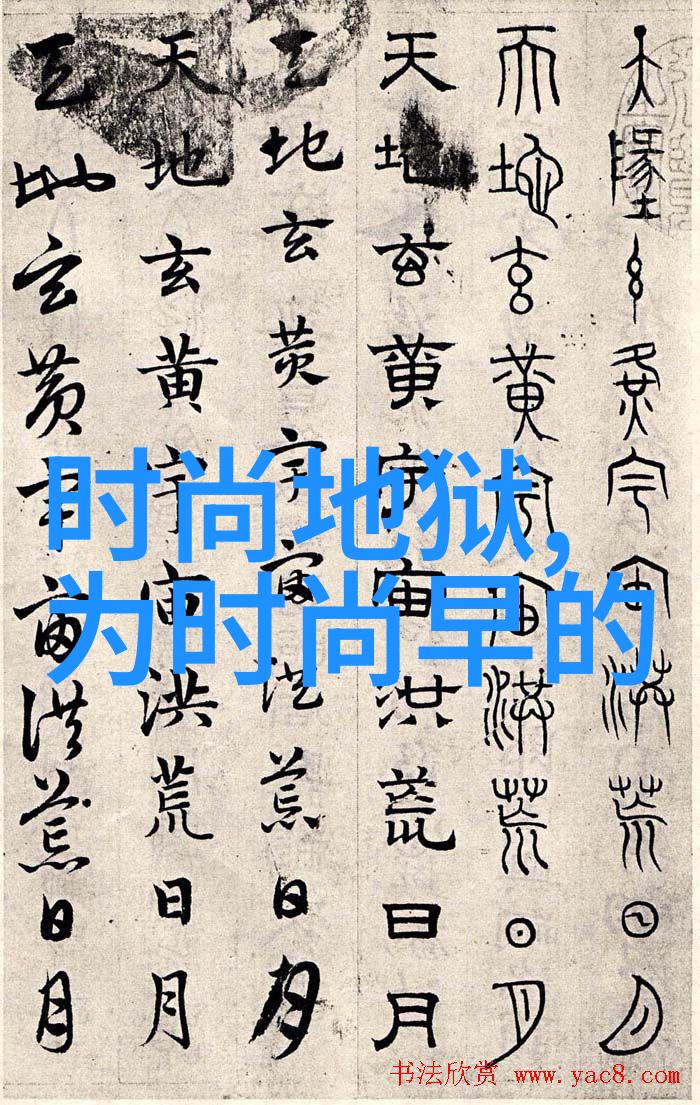 天墬玄黃宇宙洪荒日月
天地玄黃宇宙洪荒日月
天地玄黃宇宙洪荒日月
天地玄黄宇宙洪荒日月
天地玄黄宇宙洪荒日月
天地玄黄宇宙洪荒日月
时尚地狱,
为时尚早的
书法欣赏 www.yac8.com